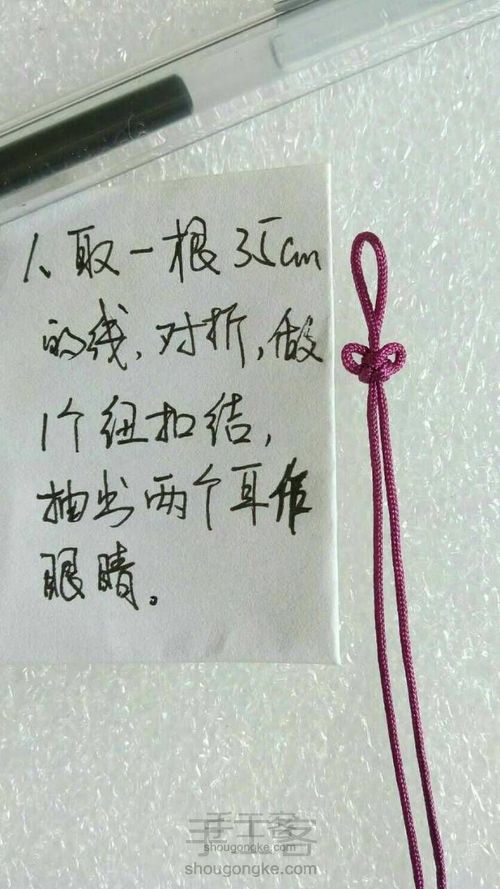 1、取一根35cm
的线，对折，做
1个纽扣结，
抽出两个耳作
眼睛。
手工客
shougongke.com
手工客
shougongke.com